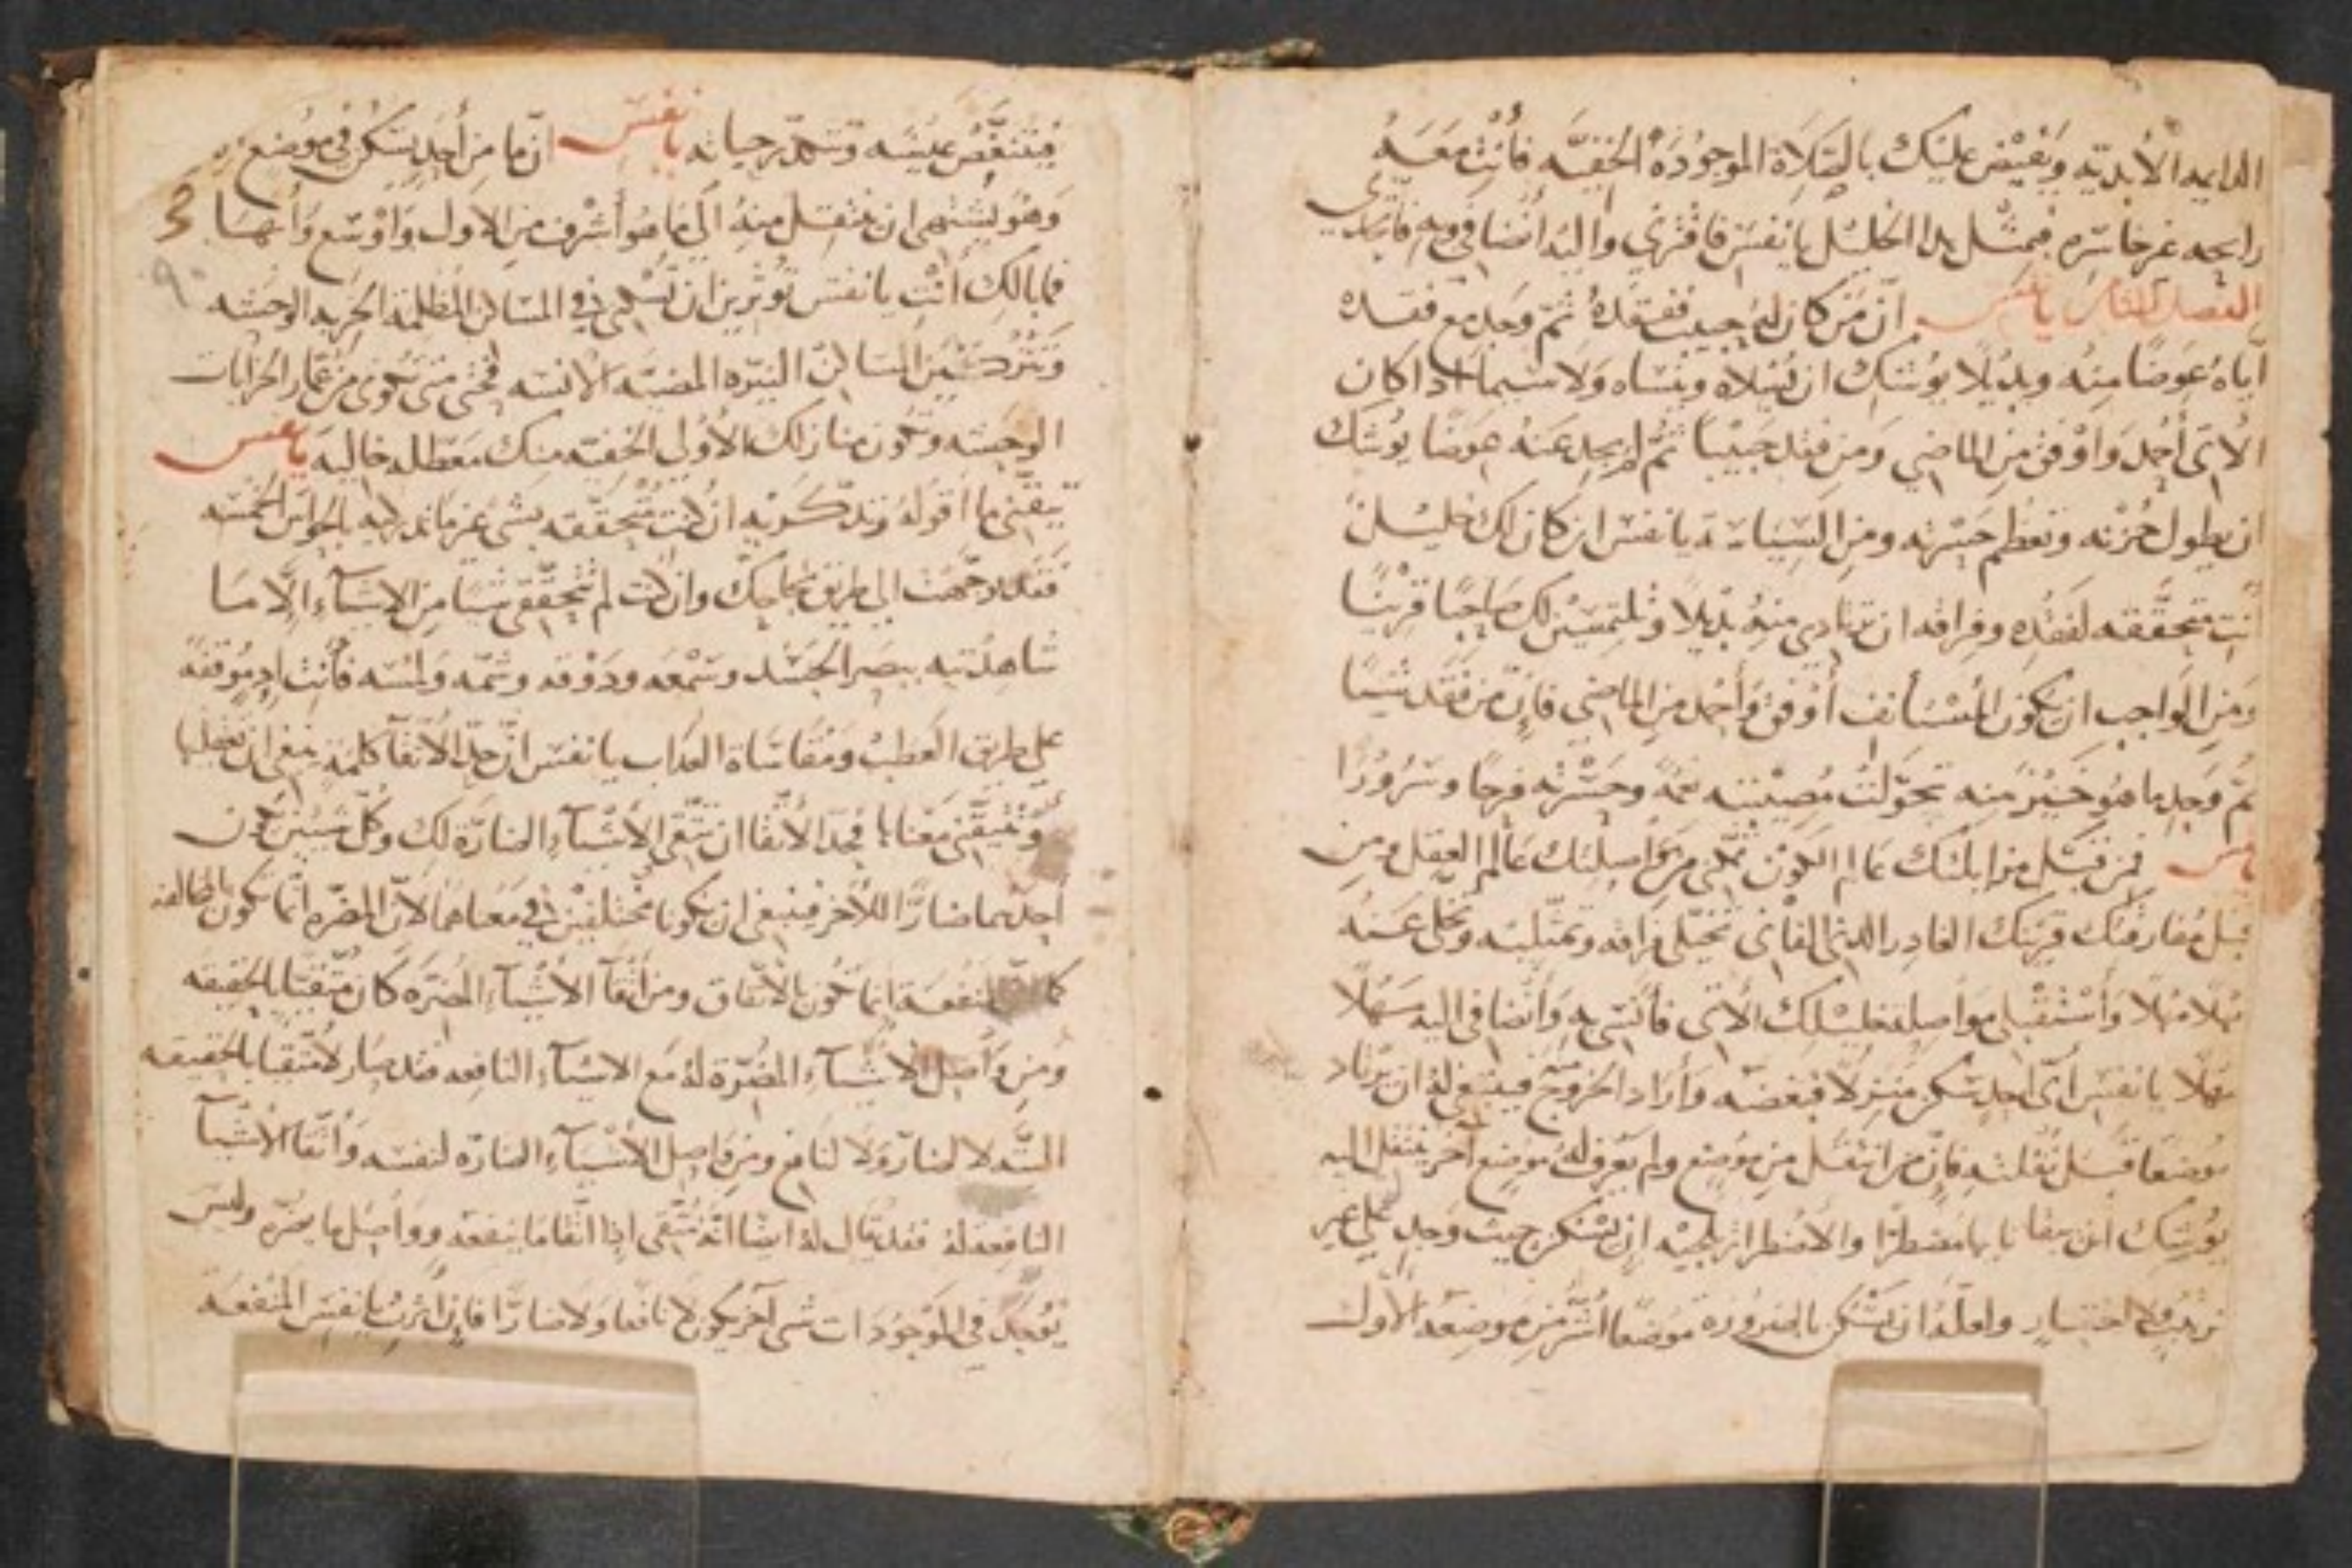 الدايمه الأبديّه ويَفيْض عليَك بالصّلاة الموجُودَة الخفيّه فأنتِ معَهُ
رابحه غير خاسَره فبمثل هذا الخليْل يا نفسَ فاقترني واليه أيضا
الفصل يا نفس انّ مَن كان لهُ حبيب ففقدهُ ثمّ وجد مع فقده
اياهُ عِوضًا منهُ وبديْلًا يوشك ان يسْلاه وينسَاه ولا سيما اذا كان
الاتى أجْمل وأوْفق مِن الماضي ومن فقد حَبيْبًا ثمّ لم يجد عنهُ عوضًا يوشك
ان يطول حُزْنه وتعظم حسْرته ومن يا نفسَ ان كان لك خليْلًا
أنتِ متحققه لفقده وفراقه ان ترتادي منهُ بديلا وتلتمسيْن لك صاحبًا قريْنًا
ومَن الواجب ان يكون المُسْتأنف أوْفق وأجْمل من الماضي فإنّ من فقد شيْيًا
ثمّ وجد ما هُو خيْر منه تحوّلت مُصِيبتِه نعمة وحسْرته فرحًا وسُرُورًا
يا نفس فمن قبْل مزايلتك عالم الكوْن تمكّني من مُواصلتك عالم العقل ومن
قبل مُفارقتك قرينك الغادِر الفاني تخيّلي فراقه وتمثّليه وتخلّى عنهُ
مهلًا مهْلًا واسْتقبْلي مواصلة خليْلك الاتى فأنسَي به وانضافي اليه سَهْلًا
سَهْلًا يا نفسَ أىّ احد سَكن منزلًا فبغضه وأراد الخروج فينبغى له ان يرتاد
موضعًا قبْل نُقلته فإنّ من انتقل من موْضع ولم يعْرف لهُ موْضع آخر ينتقل اليه
يوشك ان يبقا تايها مضطرّا والاضْطرار يلجيْه ان يسْكن حيث وجد على غير
ترتيب ولا اختيار ولعلّه ان يسْكن بالضرورة موْضعًا أشَرّ من موضعه الأول
فيتنغّص عيْشه وتتكدّر حياته يا نفس انّ ما من أحد يسْكن في موْضع
وهُو يشتهى ان ينتقل منهُ الى ما هُو أشرف من الاول وأوْسَع وأبهَا
فما بالك أنْتِ يا نفسَ تؤثرين ان تسْكنى في المسَاكن المُظلمة الخربه الوحشه
وتتْركيْن المسَاكن النيّره المضيّه الانسه فحتى متى تكونى من عُمّار الخرابات
الوحشه وتكون منازلك الأولى الخفيّه منك معَطّله خاليه يا نفس
تيقّنى ما أقولهُ وتدّكريه ان كنت متحققه بشىء غير ما تدركيه بالحواسّ الخمسَه
فقد توجّهت الى طريق نجاحك وان كنت لم تتحقّقي شيْا من الاشيَآء الّا مَا
شاهدْتيه ببصر الجَسَد وسَمْعه وذوْقه وشمّه ولمْسَه فأنت ادًا مُوقفة
على طريق العطبْ ومقاسَاة العذاب يا نفسَ انّ حدّ الأتقآ كلمة ينبغى ان تعقليها
وتتيقّني معْناها فحدّ الأتّقا ان تتّقى الأشيآء الضارّة لك وكلّ شيئين يكون
أحدُهما ضارًّا للآخر فينبغى ان يكونا مختلفيْن في معناهما لانّ المضرّه انّما تكون بالمخالفه
كما انّ المنفعة انما تكون بالاتّفاق ومن اتّقآ الأشيآء المضرّه كان متّقيًا بالحقيقه
ومن واصَل الاشيآء المضُرّة لهُ مع الاشيآء النافعه فقد صَار لا متّقيا بالحقيقه
لا لضارّ ولا لنافع ومن واصل الأشيآء الضارّه لنفسه واتّقا الأشيآ
النافعه لهُ فقد يقال لهُ ايضًا انّه مُتّقى اذا اتّقا ما ينفعه وواصل ما يضرّه وليسَ
يوجد في الموْجُودات شى آخر يكون لا نافعا ولا ضارّا فإن اثرتِ يا نفسَ المنفعَه